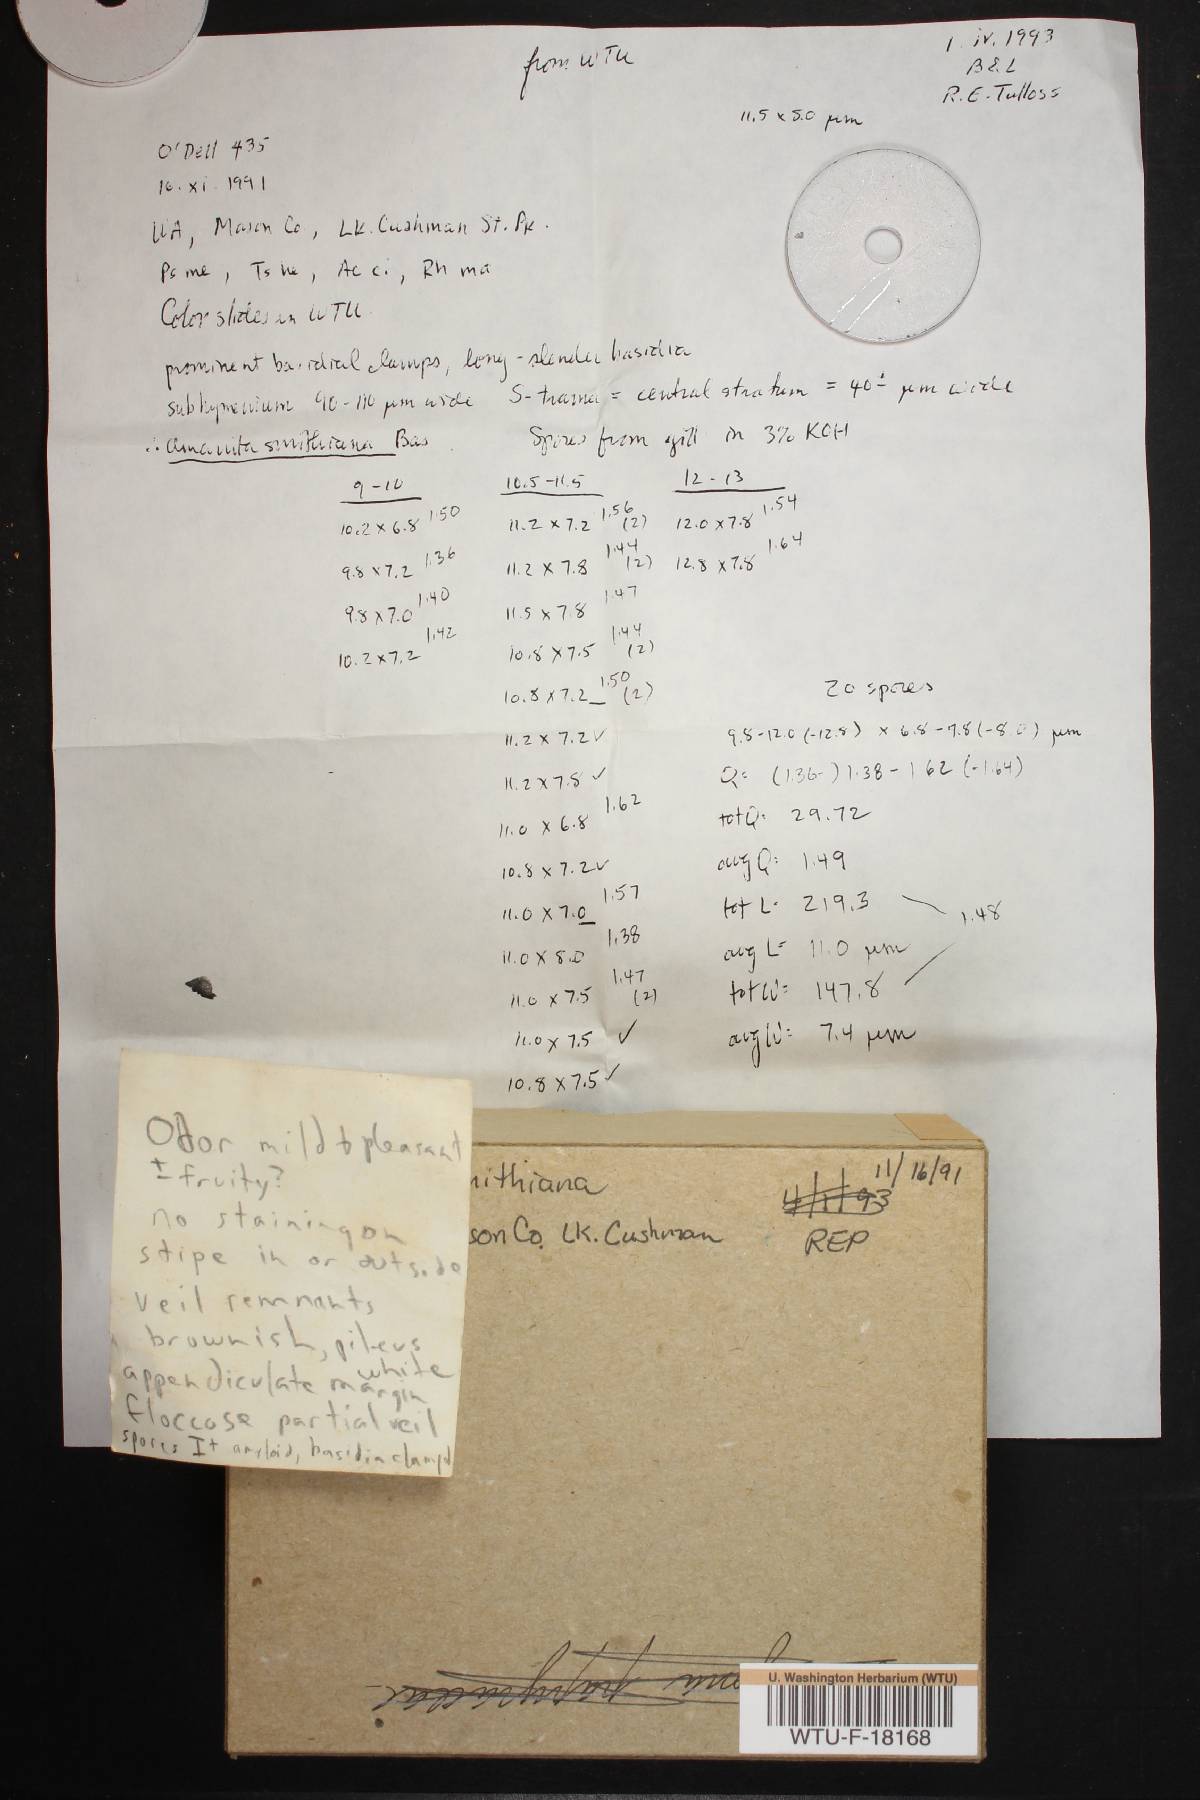 from WTU
1. iv. 1993
B & L
R.E. Tulloss
11.5 x 8.0 µm
O'Dell 435
16. xi. 1991
WA, Mason Co, Lk. Cushman St. Pk.
Psme, Tshe, Acci, Rhma
Color slides in WTU.
prominent basidial clamps, long-slender basidia
subhymenium 90-110 µm wide S-trama = central stratum = 40± µm wide
∴ Amanita smithiana Bas Spores from gill in 3% KOH
9-10 10.5-11.5 12-13
10.2 x 6.8 1.50 11.2 x 7.2 1.56 (2) 12.0 x 7.8 1.54
9.8 x 7.2 1.36 11.2 x 7.8 1.44 (2) 12.8 x 7.8 1.64
9.8 x 7.0 1.40 11.5 x 7.8 1.47
10.2 x 7.2 1.42 10.8 x 7.5 1.44 (2)
10.8 x 7.2 1.50 (2)
11.2 x 7.2 ✓
11.2 x 7.8 ✓
11.0 x 6.8 1.62
10.8 x 7.2 ✓
11.0 x 7.0 1.57
11.0 x 8.0 1.38
11.0 x 7.5 1.47 (2)
11.0 x 7.5 ✓
10.8 x 7.5 ✓
20 spores
9.8-12.0 (-12.8) x 6.8-7.8 (-8.0) µm
Q= (1.36-) 1.38-1.62 (-1.64)
totQ= 29.72
avgQ= 1.49
tot L= 219.3
avg L= 11.0 µm
1.48
totW= 147.8
avgW= 7.4 µm
Odor mild to pleasant
± fruity?
no staining on
stipe in or outside
veil remnants
brownish, pileus
white
appendiculate margin
floccose partial veil
spores I+ amyloid, basidia clampd
mithiana
11/16/91
4/1/93
son Co. Lk. Cushman
REP
U. Washington Herbarium (WTU)
WTU-F-18168